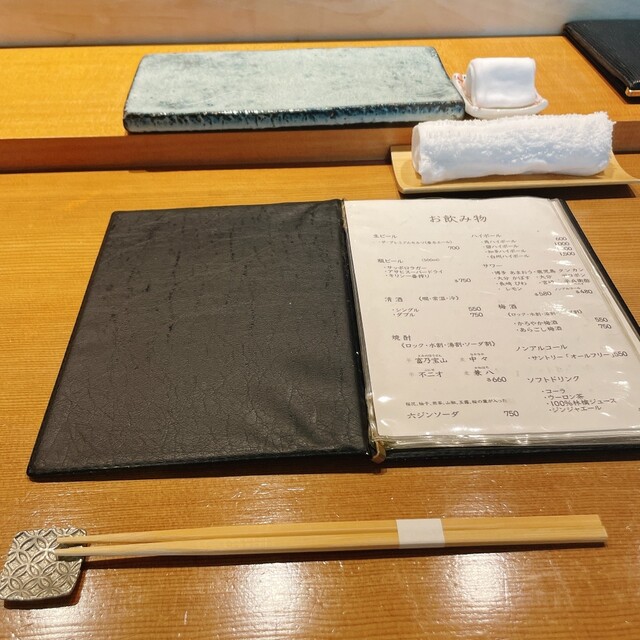 お飲み物
生ビール
700
瓶ビール
・サッポロラガー
・アサヒスーパードライ
・キリン一番搾り
¥750
清酒 (燗・常温・冷)
・シングル 550
・ダブル 750
焼酎
(ロック・水割・湯割・ソーダ割)
富乃宝山 中々
不二才 兼八
¥660
六ジンソーダ 750
ハイボール
・角ハイボール 600
・白州ハイボール 1,500
サワー
・レモン
¥580 ¥480
梅酒
(ロック・水割・湯割・
・かろやか梅酒 550
・あらごし梅酒 750
ノンアルコール
・サントリー「オールフリー」550
ソフトドリンク
・コーラ
・ウーロン茶
・100%林檎ジュース
・ジンジャエール